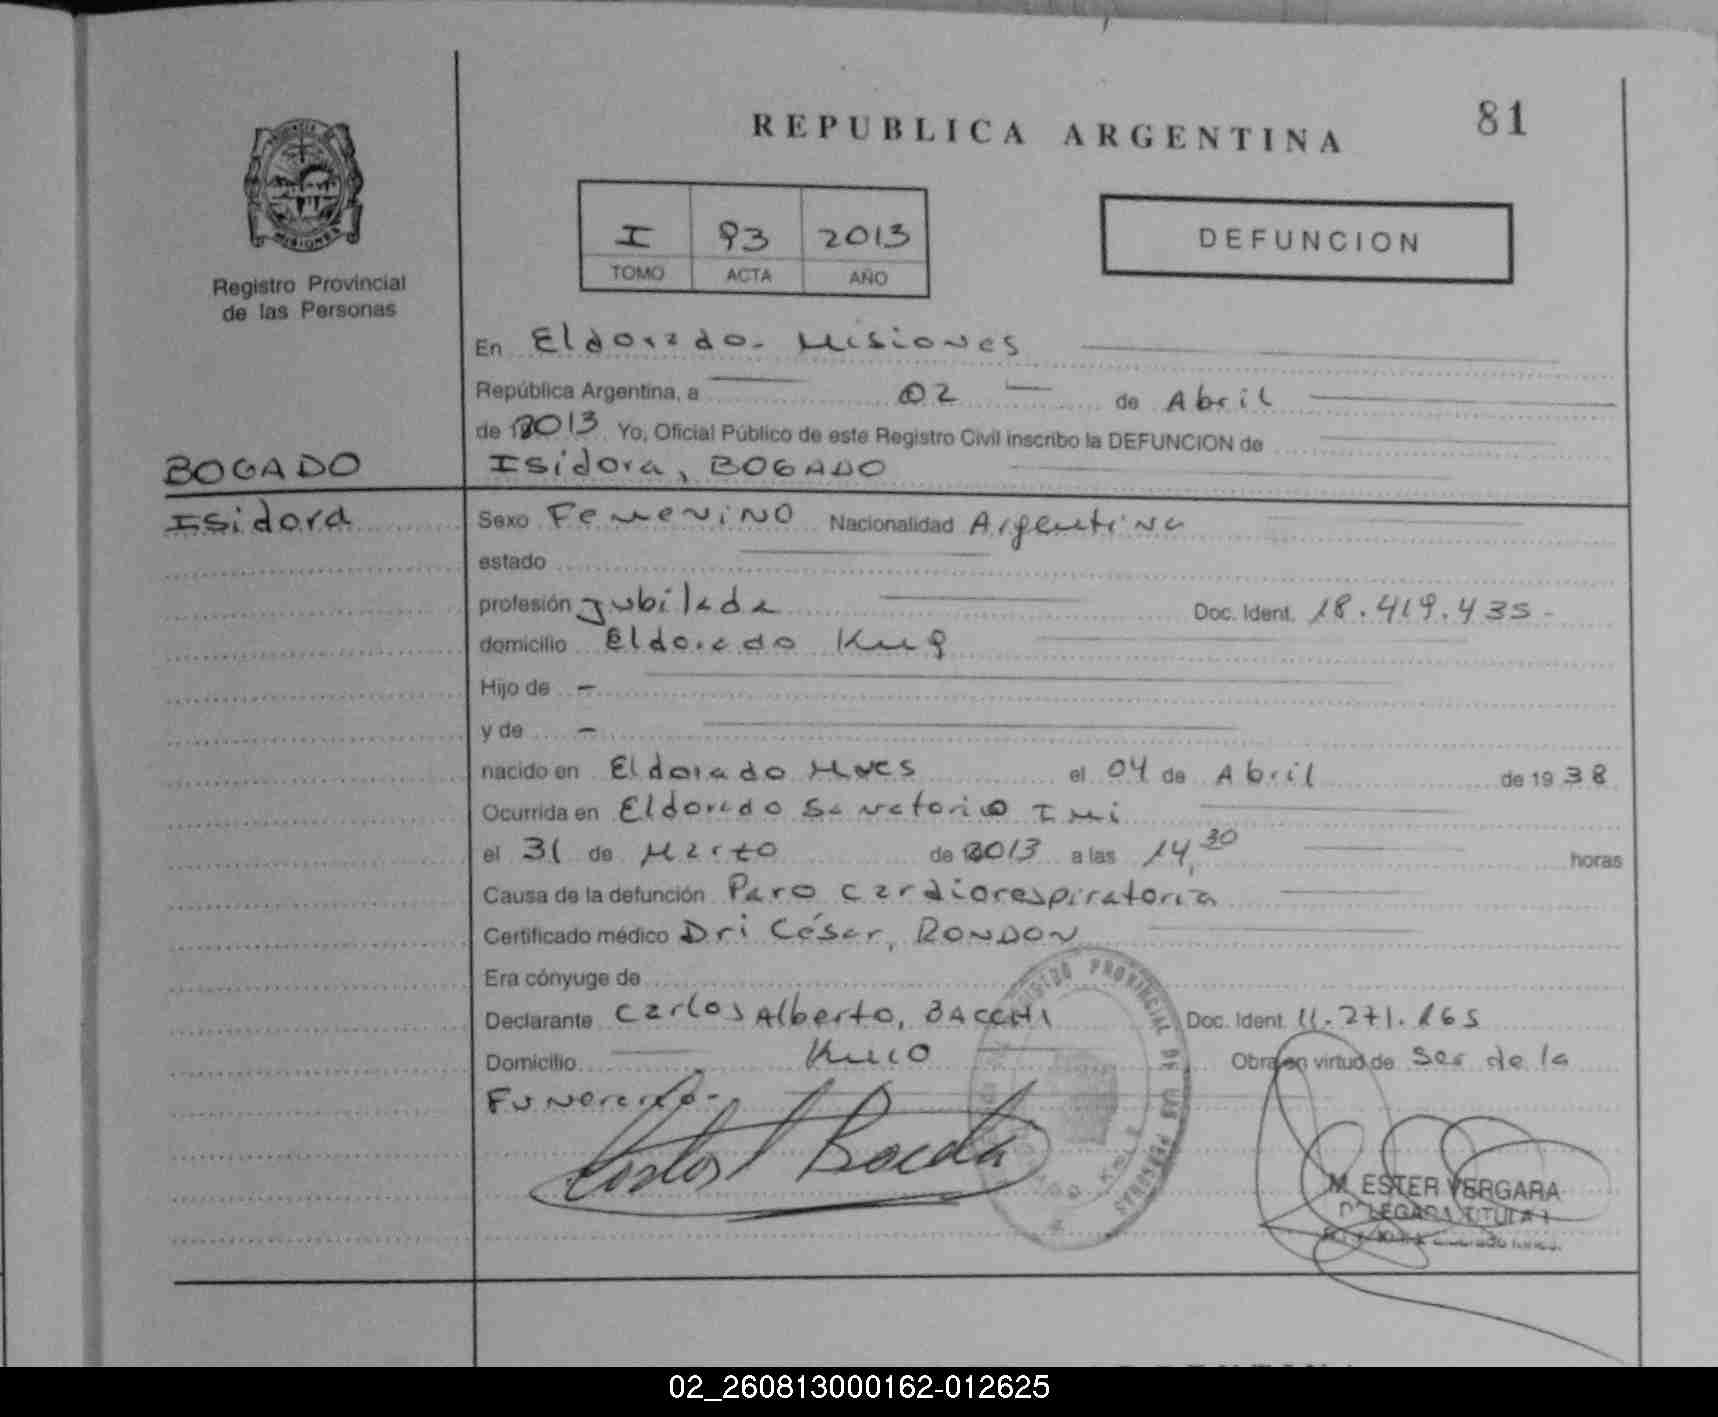 REPUBLICA ARGENTINA
81
MISIONES
Registro Provincial
de las Personas
I 93 2013
TOMO ACTA AÑO
DEFUNCION
En Eldorado - Misiones
República Argentina, a 02 de Abril
de 2013 Yo, Oficial Público de este Registro Civil inscribo la DEFUNCION de
BOGADO
Isidora
Isidora, BOGADO
Sexo Femenino Nacionalidad Argentina
estado
profesión Jubilada Doc. Ident. 18.419.435-
domicilio Eldorado Km 9
Hijo de -
y de -
nacido en Eldorado Mnes el 04 de Abril de 1938
Ocurrida en Eldorado Sanatorio
el 31 de Marzo de 2013 a las 14,30 horas
Causa de la defunción Paro cardiorespiratoria
Certificado médico Dr: César, RONDON
Era cónyuge de
Declarante Carlos Alberto, BACCHI Doc. Ident. 11.271.165
Domicilio Km 10 Obra en virtud de Ser de la
Funeraria-
PROVINCIAL DE LAS PERSONAS
M. ESTER VERGARA
02_260813000162-012625